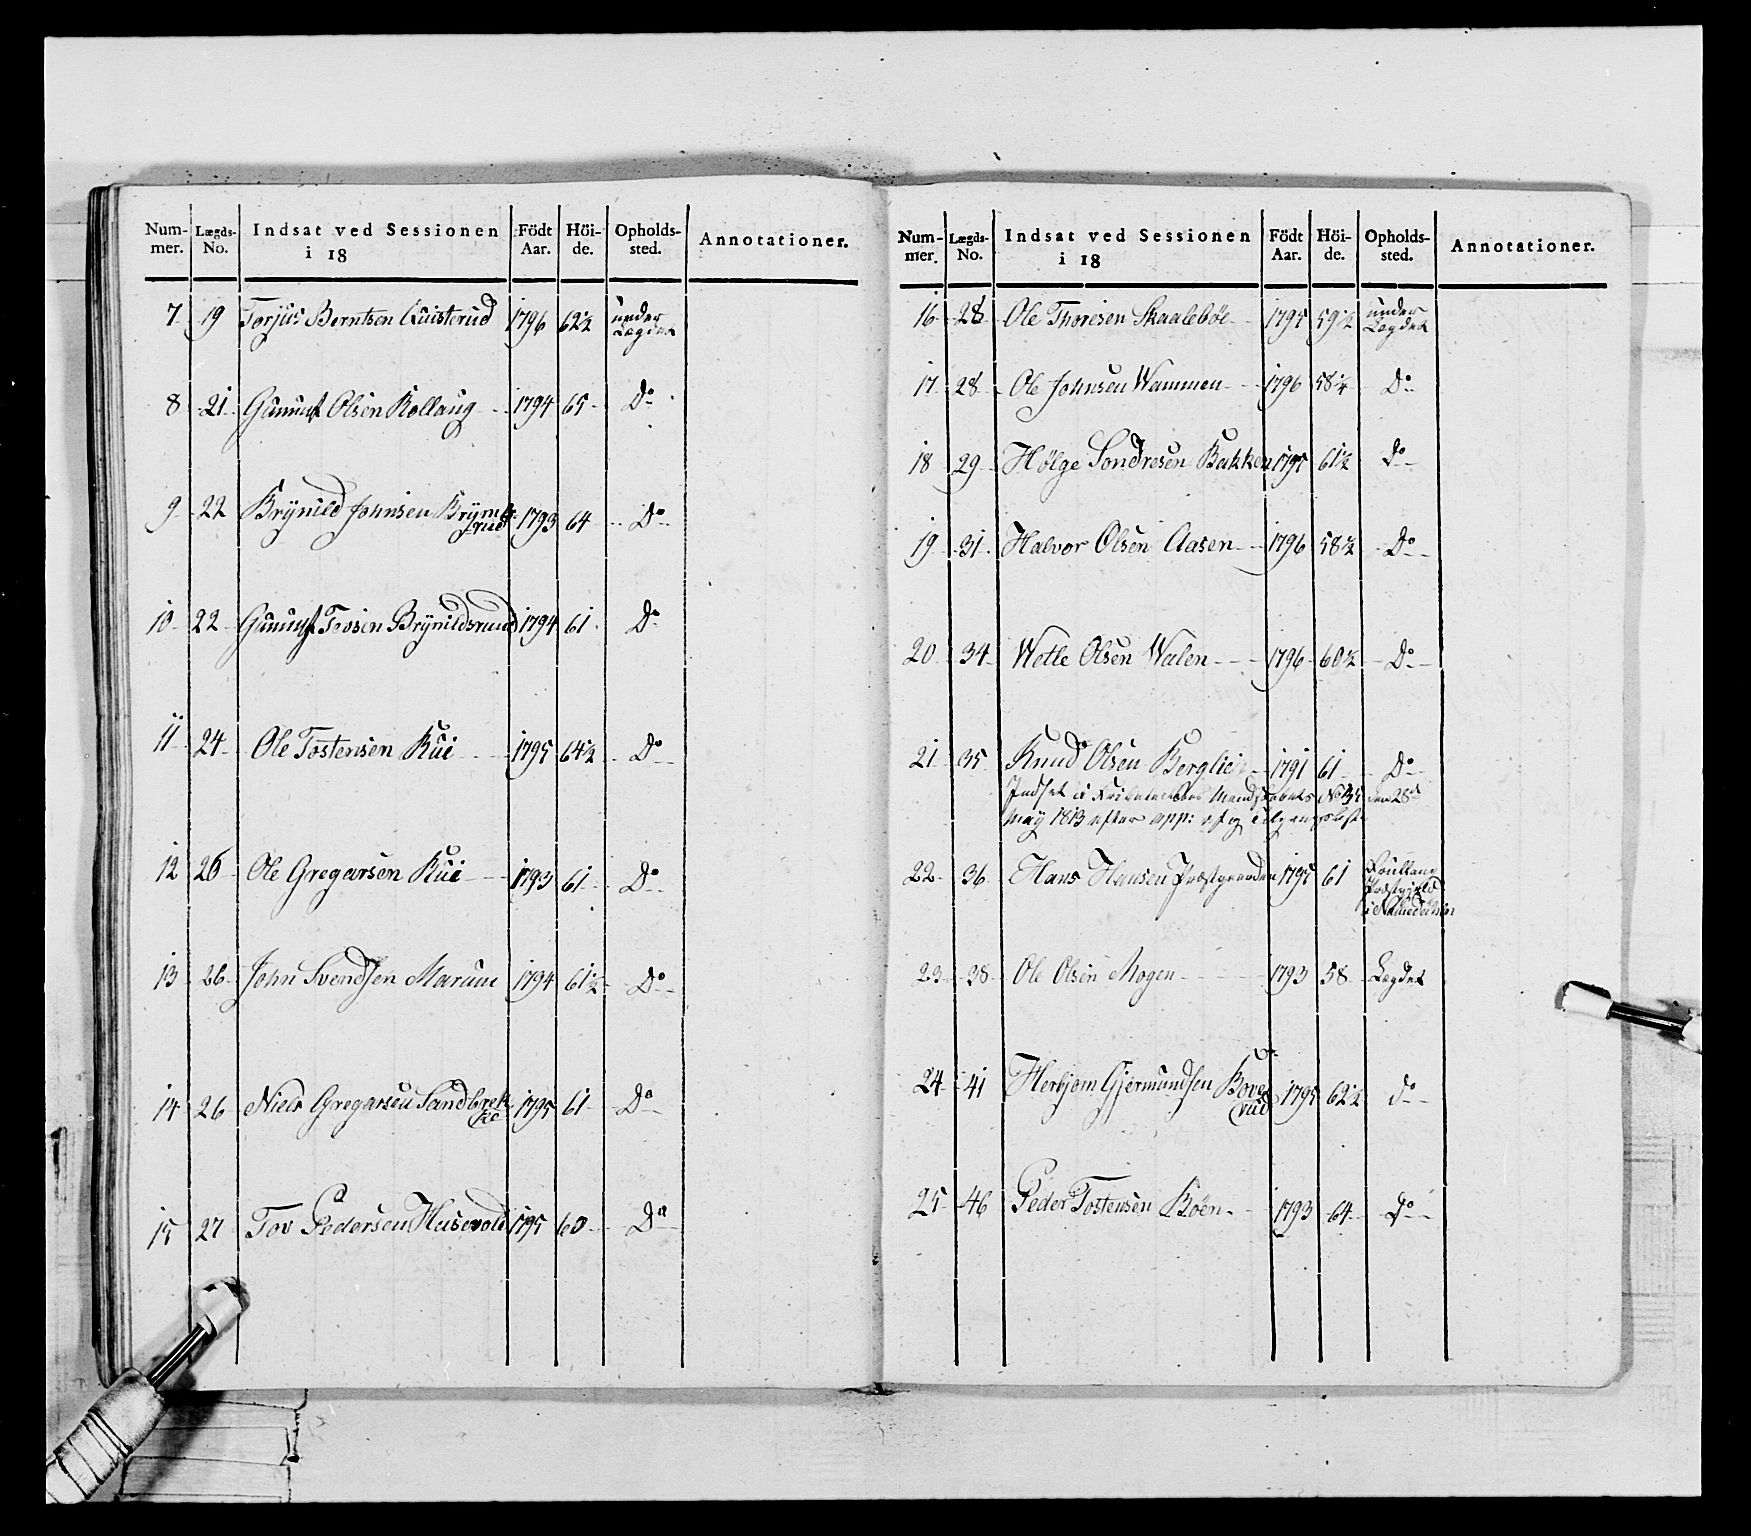 Num- Lægds- Indsat ved Sessionen Födt Höi- Opholds- Annotationer.
mer. No. i 18 Aar. de. sted.
7 19 Torjus Berntsen Quisterud 1796 62½ under
Lægdet
8 21 Gunulf Olsen Rollaug 1794 65 Do
9 22 Brÿnild Johnsen Brÿnilds
rud 1793 64 Do
10 22 Gunulf Tovsen Brÿnildsruud 1794 61 Do
11 24 Ole Tostensen Rue 1795 64½ Do
12 26 Ole Gregarsen Rue 1793 61 Do
13 26 John Svendsen Marum 1794 61½ Do
14 26 Niels Gregarsen Sandbrek
ke 1795 61 Do
15 27 Tov Pedersen Husevold 1795 60 Do
Num- Lægds- Indsat ved Sessionen Födt Höi- Opholds- Annotationer.
mer. No. i 18 Aar. de. sted.
16 28 Ole Thoresen Skaalebøe 1795 59½ under
Lægdet
17 28 Ole Johnsen Wammen 1796 58¼ Do
18 29 Hølge Sondresen Bakken 1795 61½ Do
19 31 Halvor Olsen Aasen 1796 58½ Do
20 34 Wetle Olsen Walen 1796 60½ Do
21 35 Knud Olsen Berglie 1791 61 Do
Indsat i No 35 den 28de
Maÿ 1813 efter app:
22 36 Hans Hansen Præstgaarden 1795 61
Præstgield
i
23 38 Ole Olsen Mogen 1793 58 Lægdet
24 41 Herbjørn Gjermundsen Bove
rud 1795 62½ do
25 46 Peder Tostensen Bøen 1793 64 Do